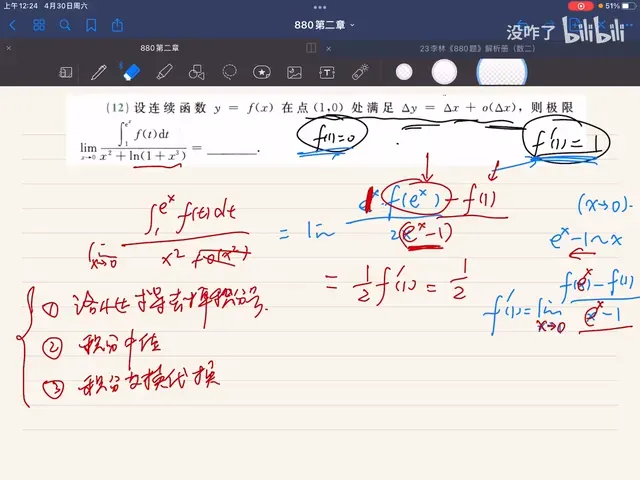 上午12:24 4月30日周六
51%
没咋了 bilibili
880第二章
880第二章
23李林《880题》解析册（数二）
(12) 设连续函数 y = f(x) 在点 (1,0) 处满足 Δy = Δx + o(Δx)，则极限
lim x→0 ∫₁^{e^x} f(t)dt / (x² + ln(1 + x³)) = ______.
f(1)=0
f'(1)=1
lim x→0 ∫₁^{e^x} f(t)dt / (x² + o(x²))
= lim (e^x · f(e^x) - f(1)) / (2(e^x-1))
= 1/2 f'(1) = 1/2
(x→0).
e^x-1~x
f'(1)=lim x→0 (f(e^x) - f(1)) / (e^x-1)
① 洛必达求导去掉积分号.
② 积分中值
③ 积分